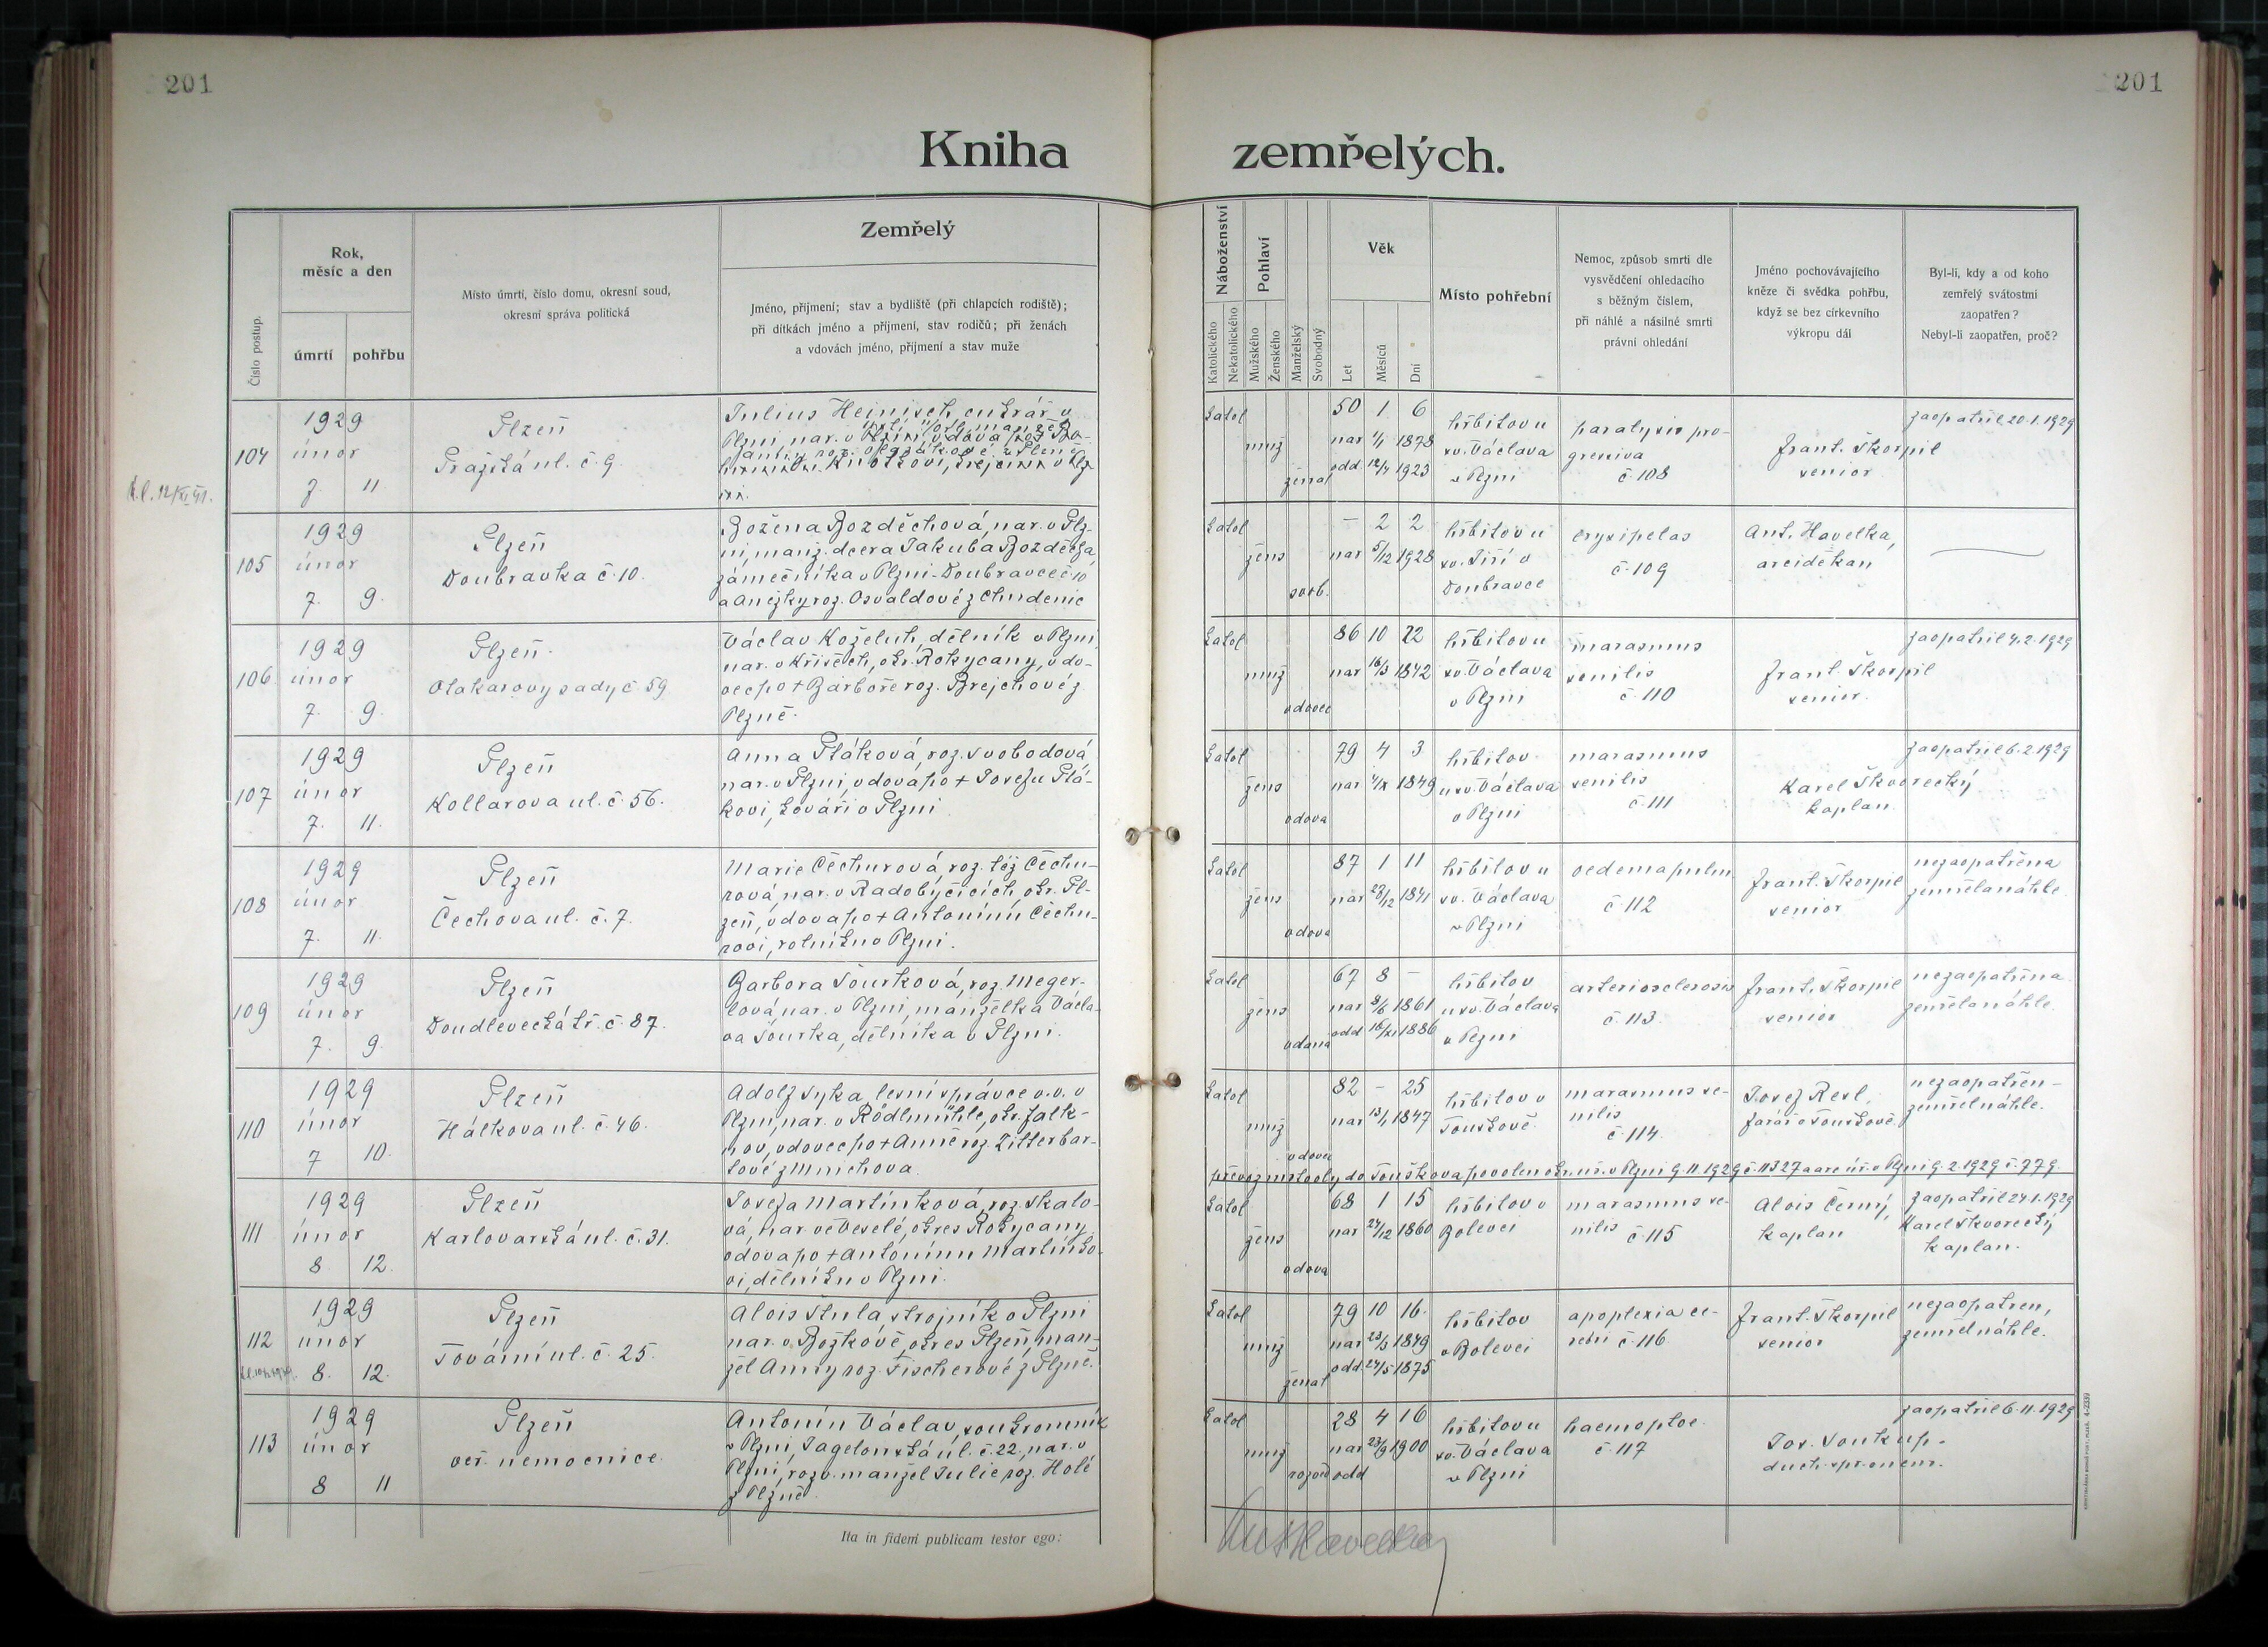 201
201
Kniha zemřelých.
Číslo postup.
Rok,
měsíc a den
úmrtí
pohřbu
Místo úmrtí, číslo domu, okresní soud,
okresní správa politická
Zemřelý
Jméno, příjmení; stav a bydliště (při chlapcích rodiště);
při dítkách jméno a příjmení, stav rodičů; při ženách
a vdovách jméno, příjmení a stav muže
Náboženství
Katolického
Nekatolického
Pohlaví
Mužského
Ženského
Manželský
Svobodný
Věk
Let
Měsíců
Dní
Místo pohřební
Nemoc, způsob smrti dle
vysvědčení ohledacího
s běžným číslem,
při náhlé a násilné smrti
právní ohledání
Jméno pochovávajícího
kněze či svědka pohřbu,
když se bez církevního
výkropu dál
Byl-li, kdy a od koho
zemřelý svátostmi
zaopatřen?
Nebyl-li zaopatřen, proč?
104
1929
únor
7. 11.
Plzeň
Pražská ul. č. 9.
Julius Heinisch, cukrář v
Plzni, nar. v
katol
muž
ženat
50 1 6
nar 1/1 1878
odd. 12/4 1923
hřbitov u
sv. Václava
v Plzni
paralysis pro-
gressiva
č. 108
Frant. Škorpil
senior
zaopatřil 20.1.1929
105
1929
únor
7. 9.
Plzeň
Doubravka č. 10.
Božena Bozděchová, nar. v Plz-
ni, manž. dcera Jakuba Bozděcha,
zámečníka v Plzni-Doubravce č. 10
a Anežky roz. Osvaldové z Chudenic
katol
žens
svob.
– 2 2
nar 5/12 1928
hřbitov u
sv. Jiří v
Doubravce
erysipelas
č. 109
Ant. Havelka,
arciděkan
106.
1929
únor
7. 9.
Plzeň
Otakarovy sady č. 59
Václav Koželuh, dělník v Plzni,
nar. v Křišech, okr. Rokycany, vdo-
vec po + Barboře roz. Brejchové z
Plzně.
katol
muž
vdovec
86 10 22
nar 16/3 1842
hřbitov u
sv. Václava
v Plzni
marasmus
senilis
č. 110
Frant. Škorpil
senior.
zaopatřil 4.2.1929
107
1929
únor
7. 11.
Plzeň
Kollarova ul. č. 56.
Anna Ptáková, roz. Svobodová,
nar. v Plzni, vdova po + Josefu Ptá-
kovi, kováři v Plzni
katol
žens
vdova
79 4 3
nar 4/X 1849
hřbitov
u sv. Václava
v Plzni
marasmus
senilis
č. 111
Karel Škvorecký
kaplan.
zaopatřil 6.2.1929
108
1929
únor
7. 11.
Plzeň
Čechova ul. č. 7.
Marie Čechurová, roz. též Čechu-
rová, nar. v Radobyčicích, okr. Pl-
zeň, vdova po + Antonínu Čechu-
rovi, rolníku v Plzni.
katol
žens
vdova
87 1 11
nar 28/12 1841
hřbitov u
sv. Václava
v Plzni
oedema pulm
č. 112
Frant. Škorpil
senior
nezaopatřena
zemřela náhle.
109
1929
únor
7. 9.
Plzeň
Doudlevecká tř. č. 87.
Barbora Šourková, roz. Meger-
lová, nar. v Plzni, manželka Václa-
va Šourka, dělníka v Plzni.
katol
žens
vdaná
67 8 –
nar 8/6 1861
odd 16/XI 1886
hřbitov
u sv. Václava
v Plzni
arteriosclerosis
č. 113.
Frant. Škorpil
senior
nezaopatřena
zemřela náhle.
110
1929
únor
7 10.
Plzeň
Hálkova ul. č. 46.
Adolf Syka, lesní správce v.v. v
Plzni, nar. v Rödlmühle, okr. Falk-
nov, vdovec po + Anně roz. Zitterbar-
tové z Mnichova.
katol
muž
vdovec
82 – 25
nar 13/1 1847
hřbitov v
Touškově
marasmus se-
nilis
č. 114.
Josef Resl,
farář v Touškově.
nezaopatřen –
zemřel náhle.
převoz mrtvoly do Touškova povolen okr. úř. v Plzni 9.II.1929 č. 11327 a arc. úř. v Plzni 9.2.1929 č. 779.
111
1929
únor
8. 12.
Plzeň
Karlovarská ul. č. 31.
Josefa Martínková, roz. Skalo-
vá, nar. ve Veselé, okres Rokycany,
vdova po + Antonínu Martínko-
vi, dělníku v Plzni.
katol
žens
vdova
68 1 15
nar 24/12 1860
hřbitov v
Bolevci
marasmus se-
nilis
č. 115
Alois Černý,
kaplan
zaopatřil 24.1.1929
Karel Škvorecký
kaplan.
112
1929
únor
8. 12.
Plzeň
Tovární ul. č. 25.
Alois Štula, strojník v Plzni
nar. v Božkově, okres Plzeň, man-
žel Anny roz. Fischerové z Plzně.
katol
muž
ženat
79 10 16.
nar 23/3 1849
odd. 24/5 1875
hřbitov
v Bolevci
apoplexia ce-
rebri č. 116.
Frant. Škorpil
senior
nezaopatřen,
zemřel náhle.
113
1929
únor
8 11
Plzeň
veř. nemocnice.
Antonín Václav, soukromník
v Plzni, Jagelonská ul. č. 22, nar. v
Plzni, rozv. manžel Julie roz. Holé
z Plzně.
katol
muž
rozved
28 4 16
nar 23/9 1900
odd
hřbitov u
sv. Václava
v Plzni
haemoptoe.
č. 117
Jos. Soukup.
duch. spr. v nem.
zaopatřil 6.II.1929
Ita in fidem publicam testor ego:
Ant Havelka